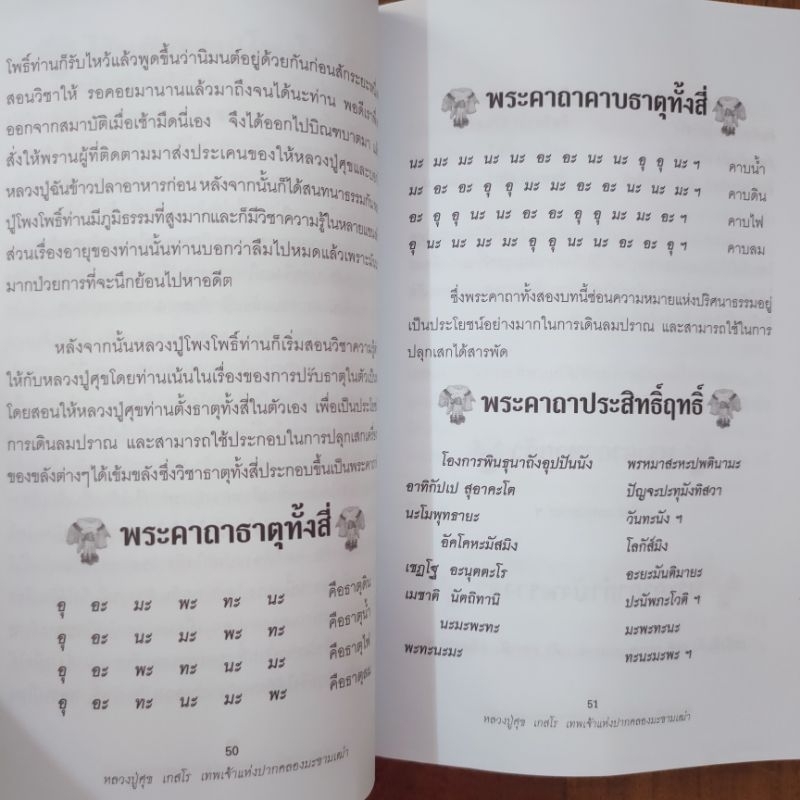 โพธิ์ท่านก็รับไหว้แล้วพูดขึ้นว่านิมนต์อยู่ด้วยกันก่อนสักระยะ
สอนวิชาให้ รอคอยมานานแล้วมาถึงจนได้นะท่าน พอดี
ออกจากสมาบัติเมื่อเช้ามืดนี่เอง จึงได้ออกไปบิณฑบาตมา
สั่งให้พรานผู้ที่ติดตามมาส่งประเคนของให้หลวงปู่ศุขและ
หลวงปู่ฉันข้าวปลาอาหารก่อน หลังจากนั้นก็ได้สนทนาธรรมกัน
ปู่โพงโพธิ์ท่านมีภูมิธรรมที่สูงมากและก็มีวิชาความรู้ในหลาย
ส่วนเรื่องอายุของท่านนั้นท่านบอกว่าลืมไปหมดแล้วเพราะ
มากป่วยการที่จะนึกย้อนไปหาอดีต
หลังจากนั้นหลวงปู่โพงโพธิ์ท่านก็เริ่มสอนวิชาความ
ให้กับหลวงปู่ศุขโดยท่านเน้นในเรื่องของการปรับธาตุในตัว
โดยสอนให้หลวงปู่ศุขท่านตั้งธาตุทั้งสี่ในตัวเอง เพื่อเป็น
การเดินลมปราณ และสามารถใช้ประกอบในการปลุกเสก
ของขลังต่างๆได้เข้มขลังซึ่งวิชาธาตุทั้งสี่ประกอบขึ้นเป็น
พระคาถาธาตุทั้งสี่
อุ อะ มะ พะ ทะ นะ คือธาตุดิน
อุ อะ นะ มะ พะ ทะ คือธาตุน้ำ
อุ อะ พะ ทะ นะ มะ คือธาตุไฟ
อุ อะ ทะ นะ มะ พะ คือธาตุลม
50
หลวงปู่ศุข เกสโร เทพเจ้าแห่งปากคลองมะขามเฒ่า
พระคาถาคาบธาตุทั้งสี่
นะ มะ มะ นะ นะ อะ อะ นะ นะ อุ อุ นะ ฯ คาบน้ำ
มะ อะ อะ อุ อุ มะ มะ อะ อะ นะ นะ มะ ฯ คาบดิน
อะ อุ อุ นะ นะ อะ อะ อุ อุ มะ มะ อะ ฯ คาบไฟ
อุ นะ นะ มะ มะ อุ อุ นะ นะ อะ อะ อุ ฯ คาบลม
ซึ่งพระคาถาทั้งสองบทนี้ซ่อนความหมายแห่งปริศนาธรรมอยู่
เป็นประโยชน์อย่างมากในการเดินลมปราณ และสามารถใช้ในการ
ปลุกเสกได้สารพัด
พระคาถาประสิทธิ์ฤทธิ์
โองการพินธุนาถังอุปปันนัง พรหมาสะหะปพตินามะ
อาทิกัปเป สุอาคะโต ปัญจะปะทุมังทิสวา
นะโมพุทธายะ วันทะนัง ฯ
อัคโคหะมัสมิง โลกัส์มิง
เชฏโฐ อะนุตตะโร อะยะมันติมายะ
เมชาติ นัตถิทานิ ปะนัพภะโวติ ฯ
นะมะพะทะ มะพะทะนะ
พะทะนะมะ ทะนะมะพะ ฯ
51
หลวงปู่ศุข เกสโร เทพเจ้าแห่งปากคลองมะขามเฒ่า